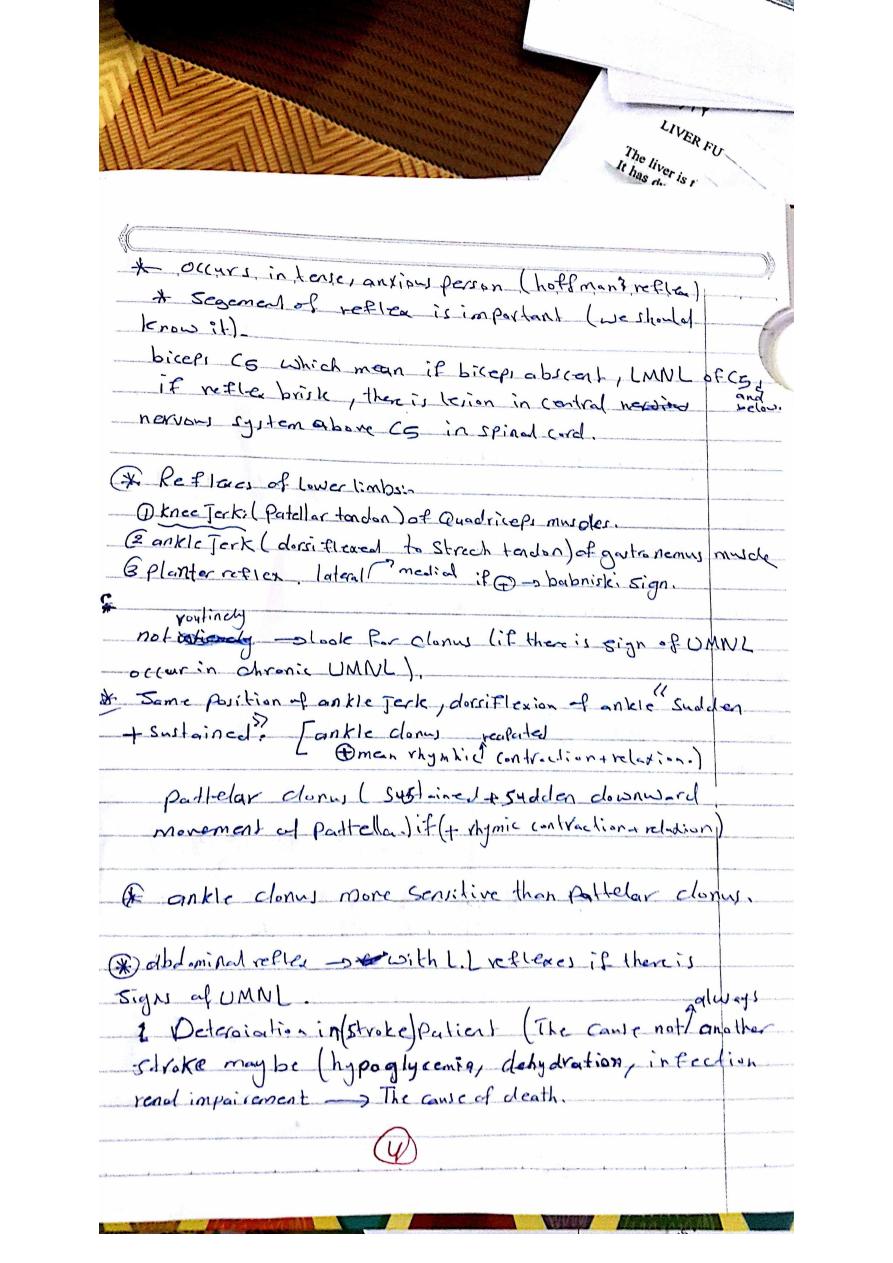 LIVER FU
The liver is
It has
* occurs in tense, anxious person (hoffman's reflex)
* Segement of reflex is important (we should
know it).
biceps C5 which mean if biceps abscent, LMNL of C5,
and
below.
if reflex brisk, there is lesion in central
nervous system above C5 in spinal cord.
* Reflexes of lower limbs:-
① knee Jerk: (Patellar tendon) of Quadriceps muscles.
② ankle Jerk (dorsiflexed to Strech tendon) of gastronemus muscle
③ planter reflex. lateral → medial if ⊕ → babniski sign.
*
routinely
not → look for clonus (if there is sign of UMNL
occur in chronic UMNL).
* Same position of ankle Jerk, dorsiflexion of ankle "Sudden
+ sustained" [ankle clonus reapeted
⊕ mean rhymhic ↑ contraction + relaxion.)
pattelar clonus ( sustained + sudden downward
movement of pattella.) if (+ rhymic contraction + relaxion)
* ankle clonus more sensitive than pattelar clonus.
* abdominal reflex → with L.L reflexes if there is
signs of UMNL.
always
1 Deteroiation in (stroke) patient (The cause not ↑ another
stroke may be (hypoglycemia, dehydration, infection
renal impairement → The cause of death.
4